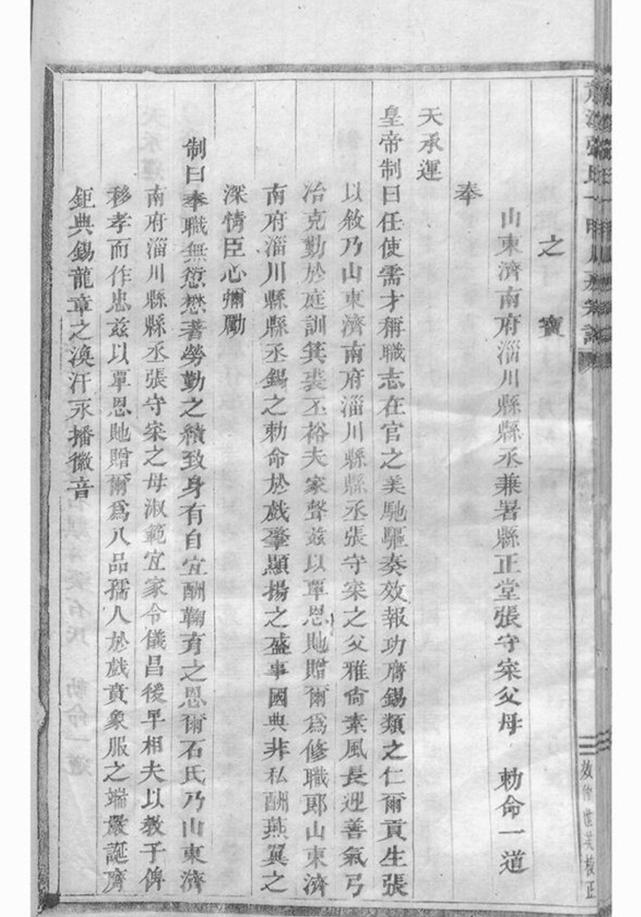 之寶
山東濟南府淄川縣縣丞兼署縣正堂張守宷父母　勅命一道
奉
天承運
皇帝制曰任使需才稱職志在官之美馳驅奏效報功膺錫類之仁爾貢生張
以敘乃山東濟南府淄川縣縣丞張守宷之父雅尙素風長迎善氣弓
冶克勤於庭訓箕裘丕裕夫家聲兹以覃恩貤贈爾爲修職郞山東濟
南府淄川縣縣丞錫之勅命於戲肇顯揚之盛事國典非私酬燕翼之
深情臣心彌勵
制曰奉職無愆懋著勞勤之績致身有自宜酬鞠育之恩爾石氏乃山東濟
南府淄川縣縣丞張守宷之母淑範宜家令儀昌後早相夫以敎子俾
移孝而作忠兹以覃恩貤贈爾爲八品孺人於戲賁象服之端嚴誕膺
鉅典錫龍章之渙汗永播徽音